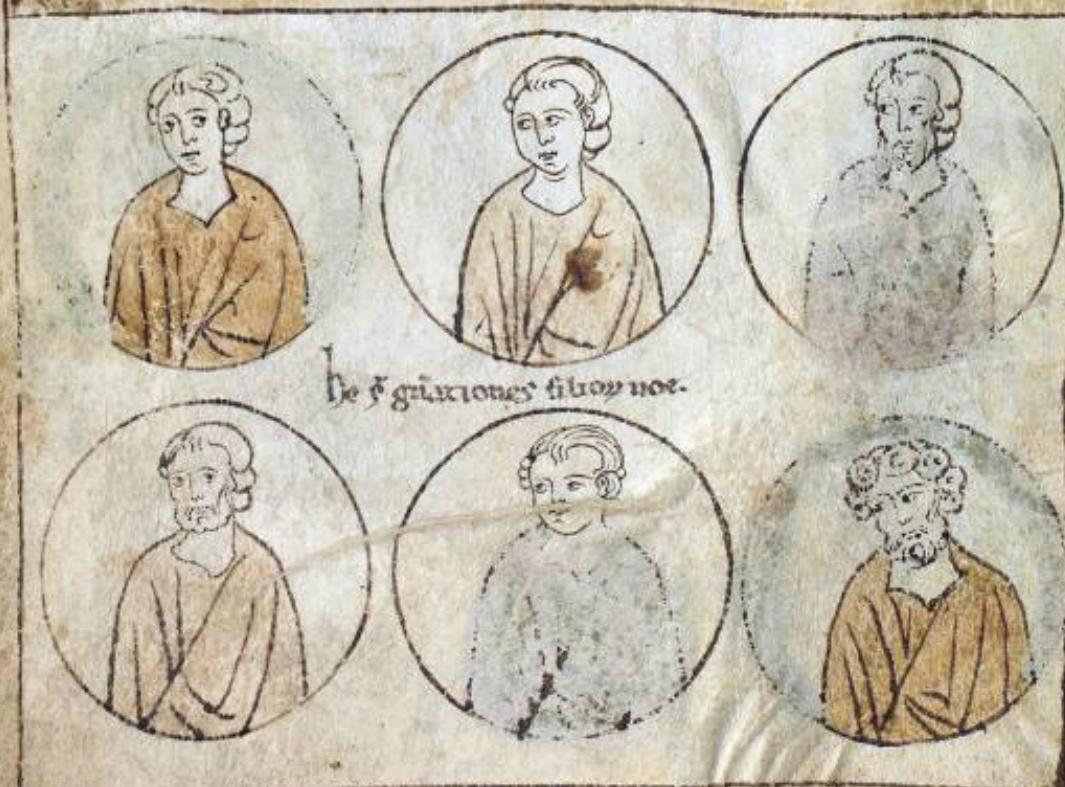 he sͭ gn̄ationes filioꝝ noe.